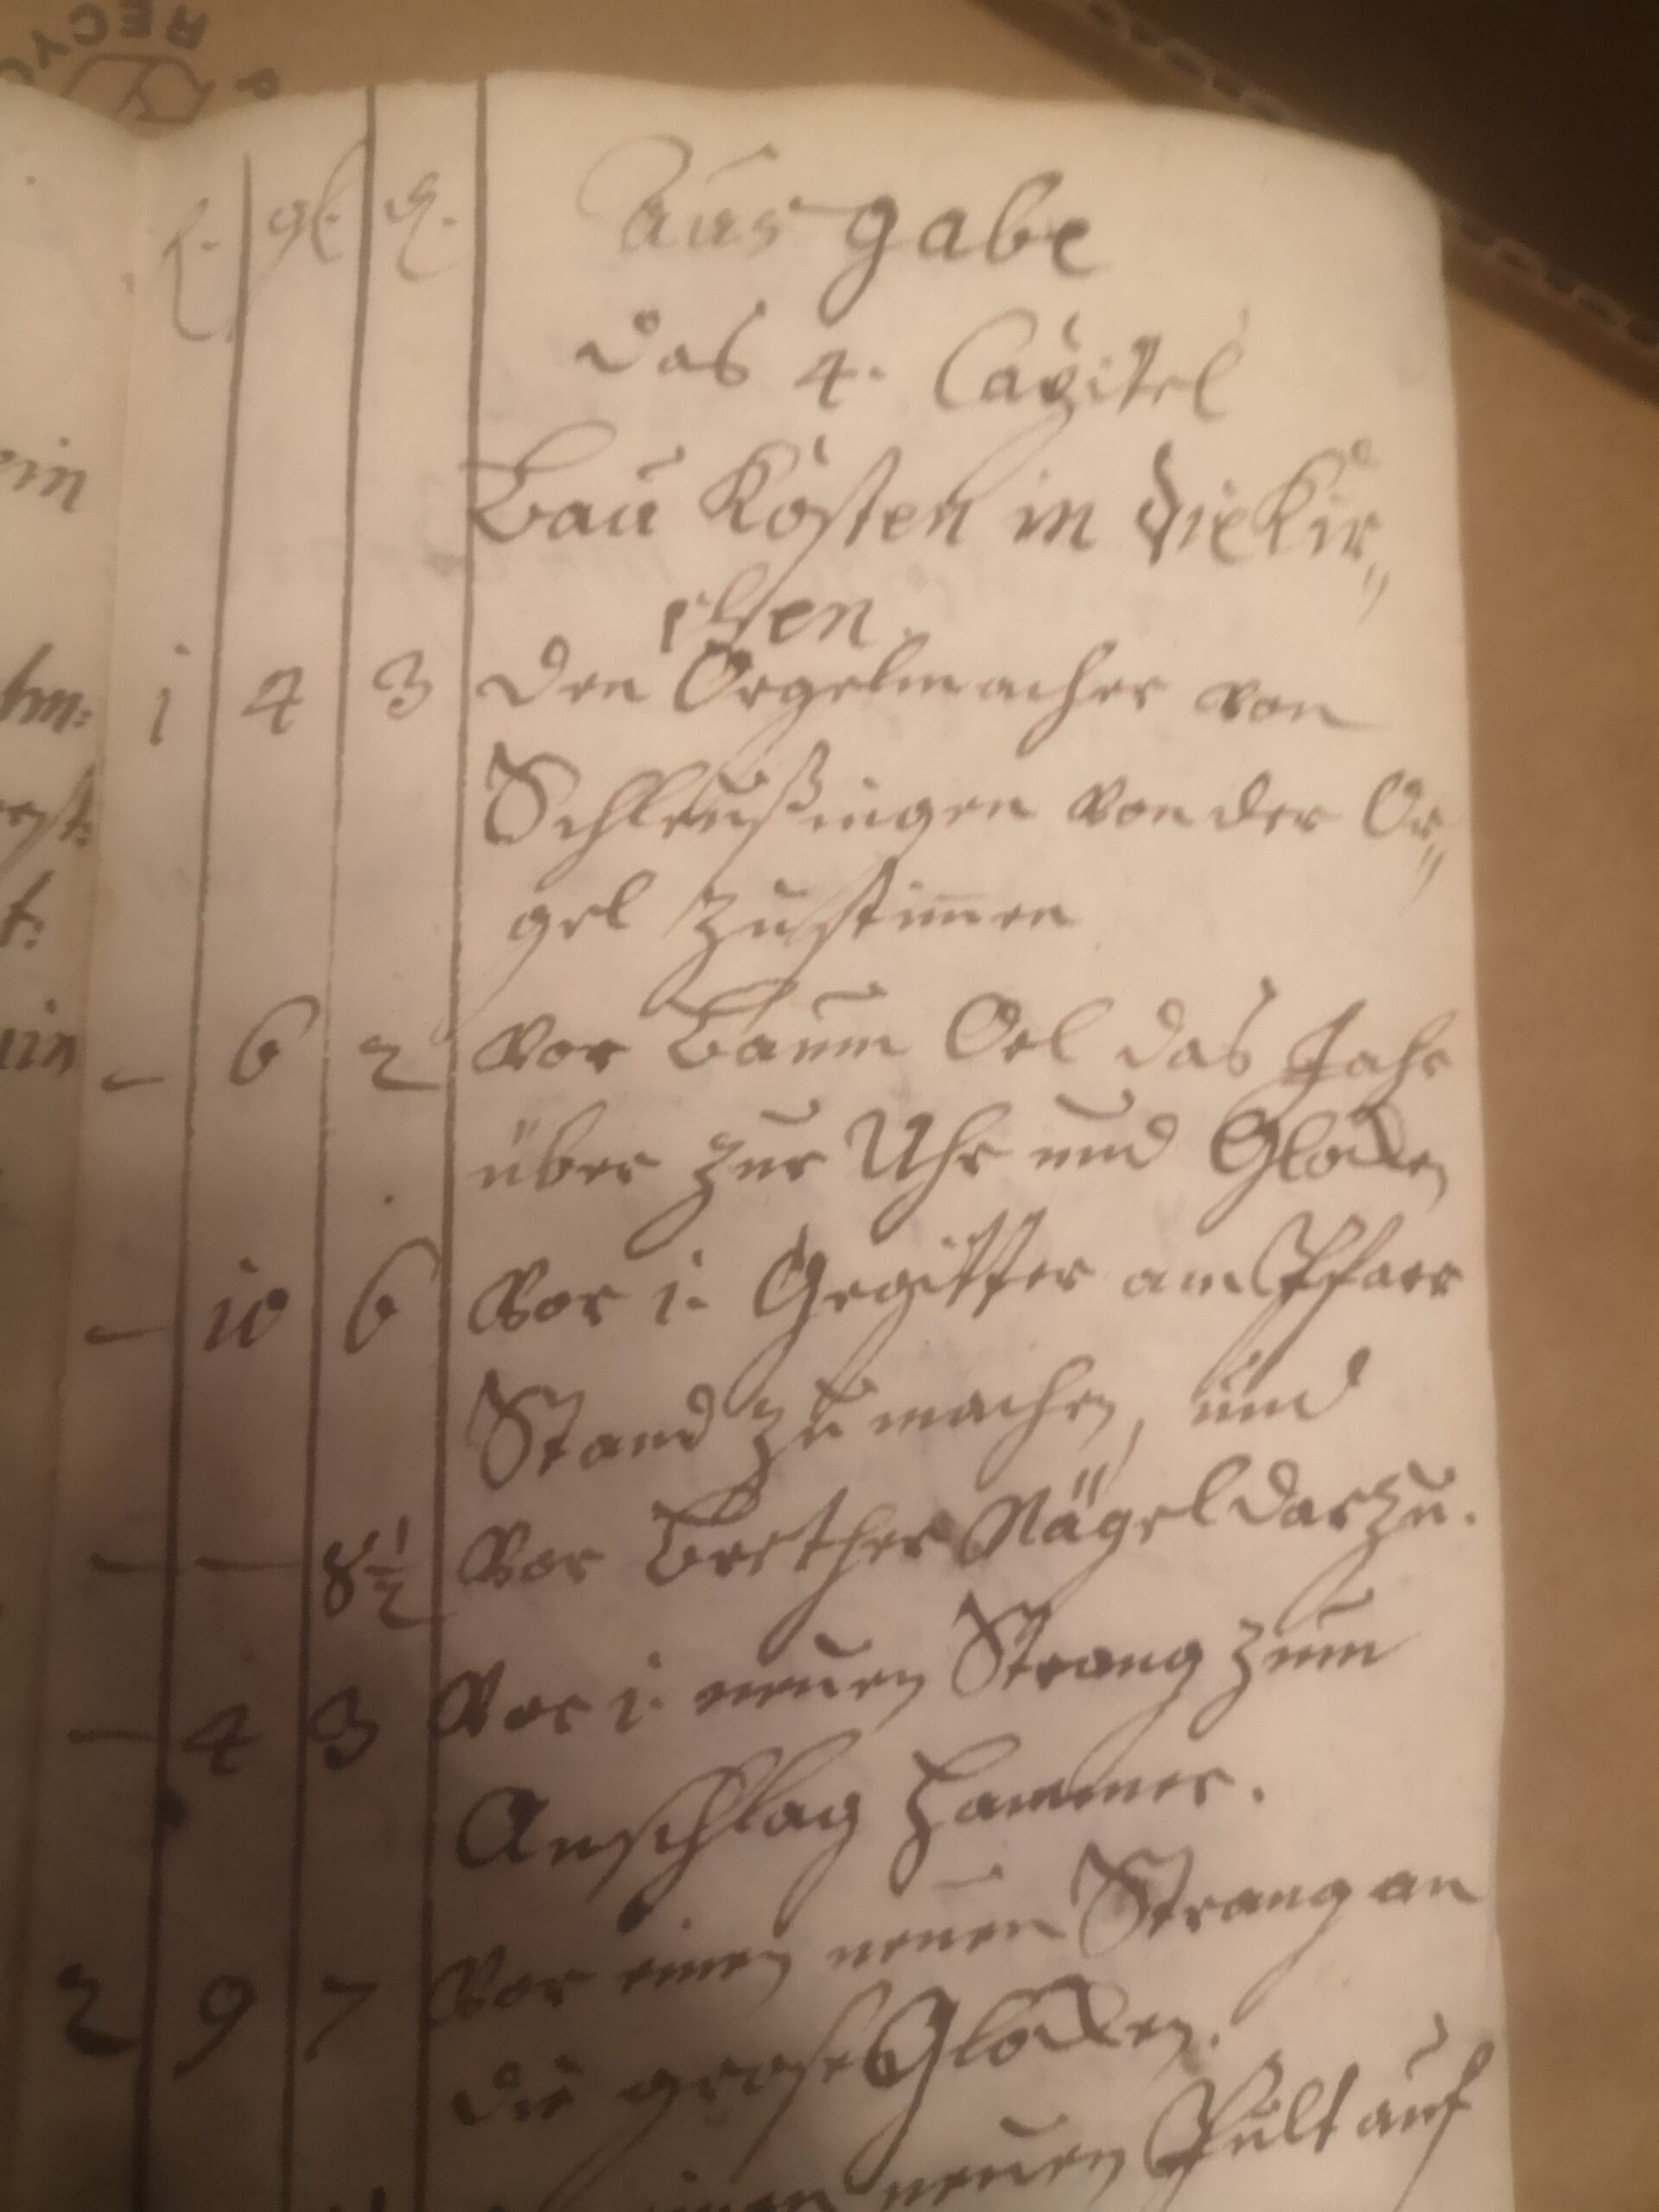 RECYC
f. gl. d.
Ausgabe
das 4. Capitel
Bau Kosten in die Kir„
chen.
1 4 3 den Orgelmacher von
Schleußingen von der Or„
gel zu stimen
– 6 2 vor Baum Oel das Jahr
über zur Uhr und Glocken
– 10 6 vor 1. Gegitter am Pfarr
Stand zu machen, und
– – 8½ vor Brether Nägel darzu.
– 4 3 vor 1. neuen Strang zum
Anschlag Hammer.
2 9 7 vor einen neuen Strang an
die große Glocken.
einen neuen Pult auf
ein
hm:
t:
ein